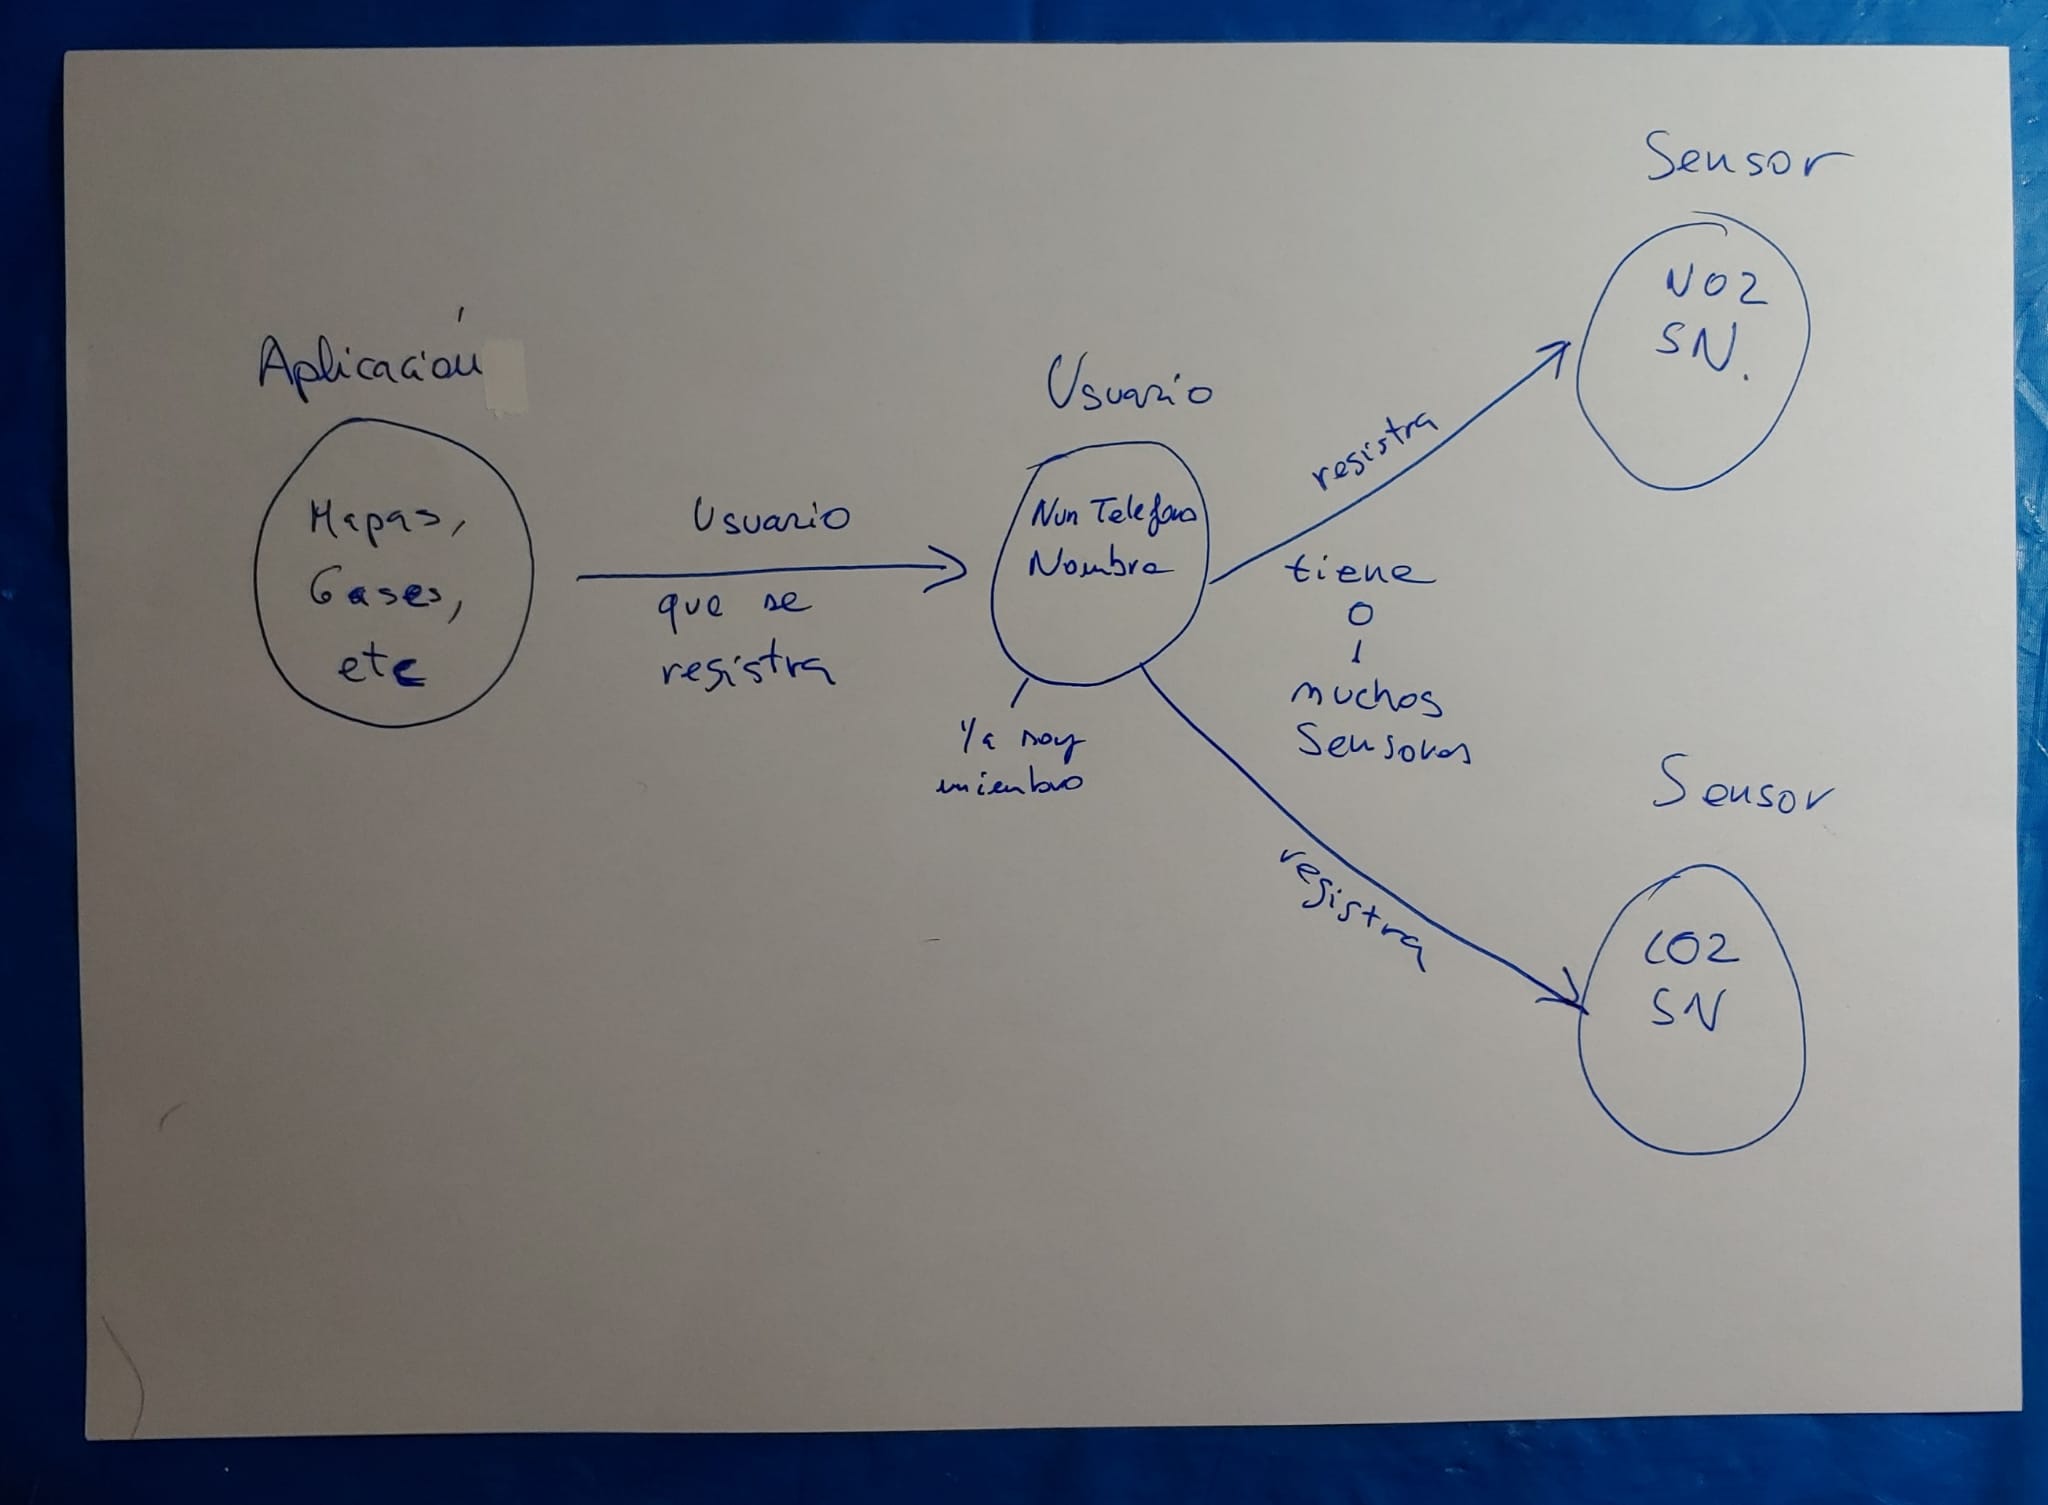 Aplicación
Mapas,
Gases,
etc
Usuario
que se
registra
Usuario
Num Telefono
Nombre
Ya soy
miembro
registra
tiene
0
1
muchos
Sensores
registra
Sensor
NO2
SN.
Sensor
CO2
SN